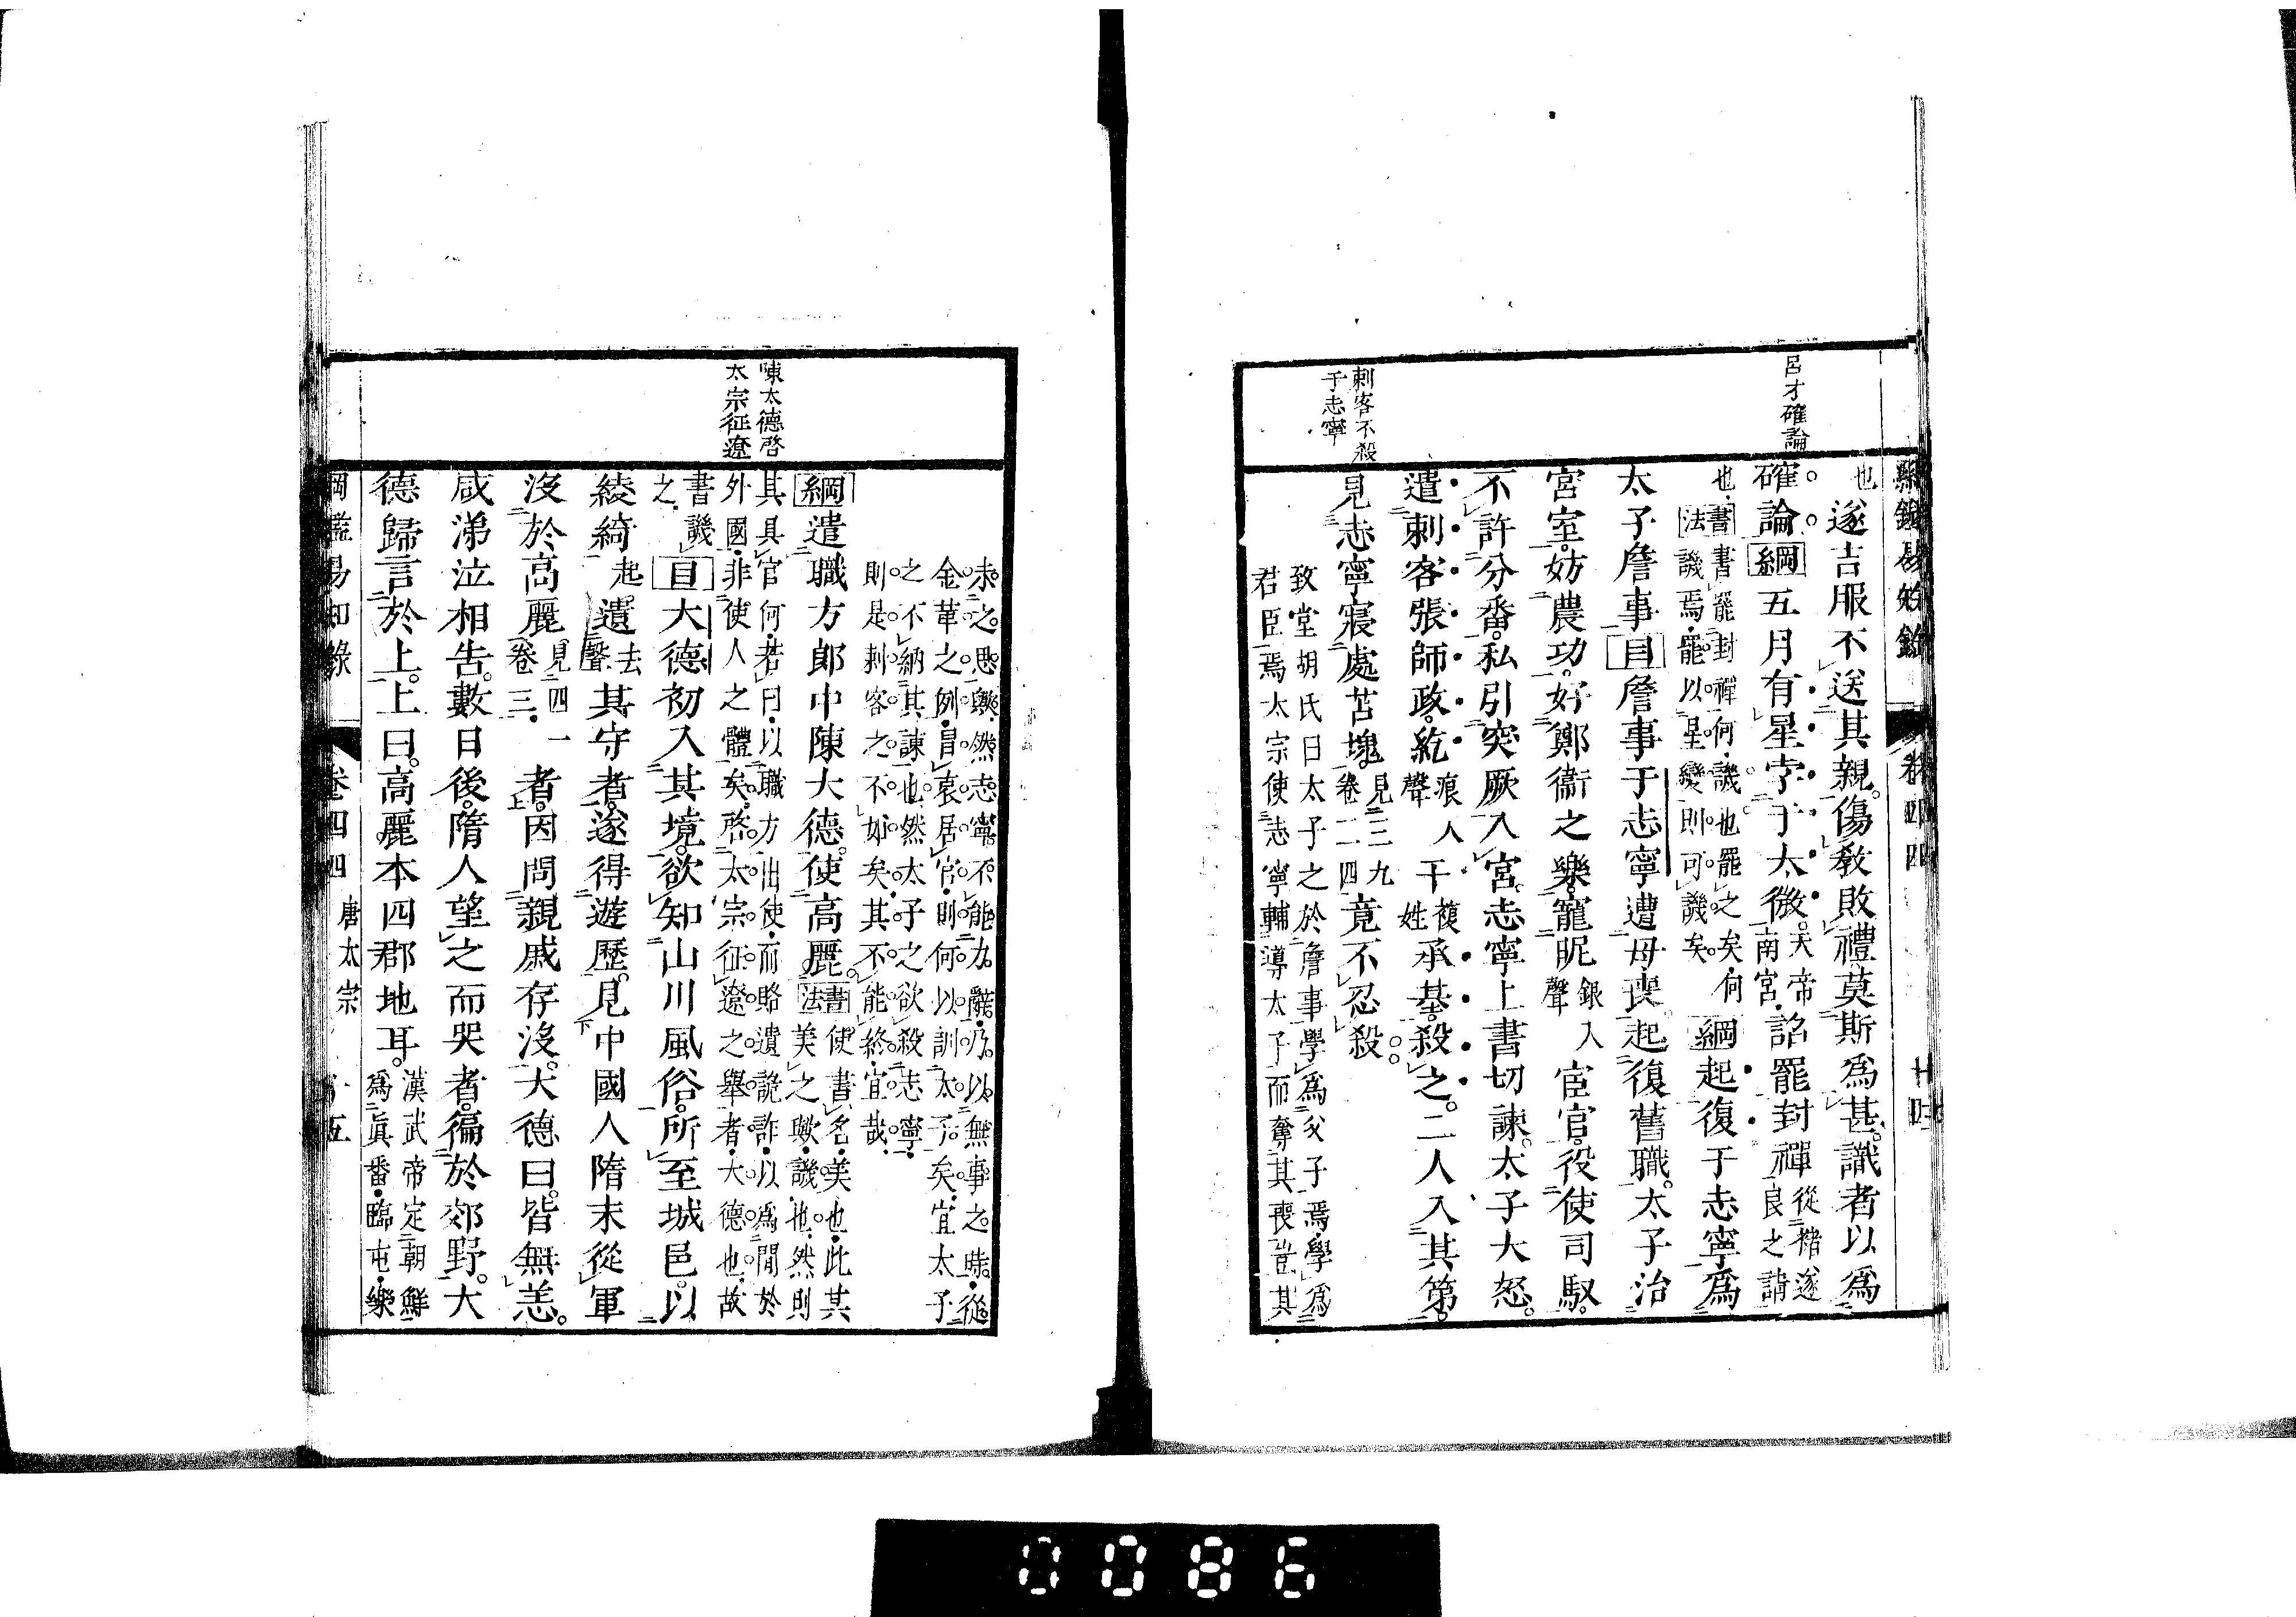 綱鑑易知錄 卷四四 廿四
呂才確論
刺客不殺
于志寧
也遂吉服不送其親傷教敗禮莫斯爲甚識者以爲
確論綱五月有星孛于太微天帝南宮詔罷封禪從褚遂良之請
也書法書罷封禪何譏也罷之矣何譏焉罷以星變則可譏矣綱起復于志寧爲
太子詹事目詹事于志寧遭母喪起復舊職太子治
宮室妨農功好鄭衞之樂寵昵銀入聲宦官役使司馭
不許分番私引突厥入宮志寧上書切諫太子大怒
遣刺客張師政紇痕入聲干複姓承基殺之二人入其第
見志寧寢處苫塊見三九卷二四竟不忍殺
致堂胡氏曰太子之於詹事學爲父子焉學爲
君臣焉太宗使志寧輔導太子而奪其喪豈其
未之思歟然志寧不能力辭乃以無事之時從
金革之例冒哀居官則何以訓太子矣宜太子
之不納其諫也然太子之欲殺志寧
則是刺客之不如矣其不能終宜哉
陳大德啓
太宗征遼
綱遣職方郎中陳大德使高麗書法使書名美也此其美之歟譏也然則
其具官何若曰以職方出使而賂遺詭詐以爲間於
外國非使人之體矣啓太宗征遼之舉者大德也故
書譏之目大德初入其境欲知山川風俗所至城邑以
綾綺起遺去聲其守者遂得遊歷見中國人隋末從軍
沒於高麗見四一卷三上者因問親戚存沒大德曰皆無恙
咸涕泣相告數日後隋人望之而哭者徧於郊野大
德歸言於上上曰高麗本四郡地耳漢武帝定朝鮮爲眞番臨屯樂
綱鑑易知錄 卷四四 唐太宗 廿五
0086